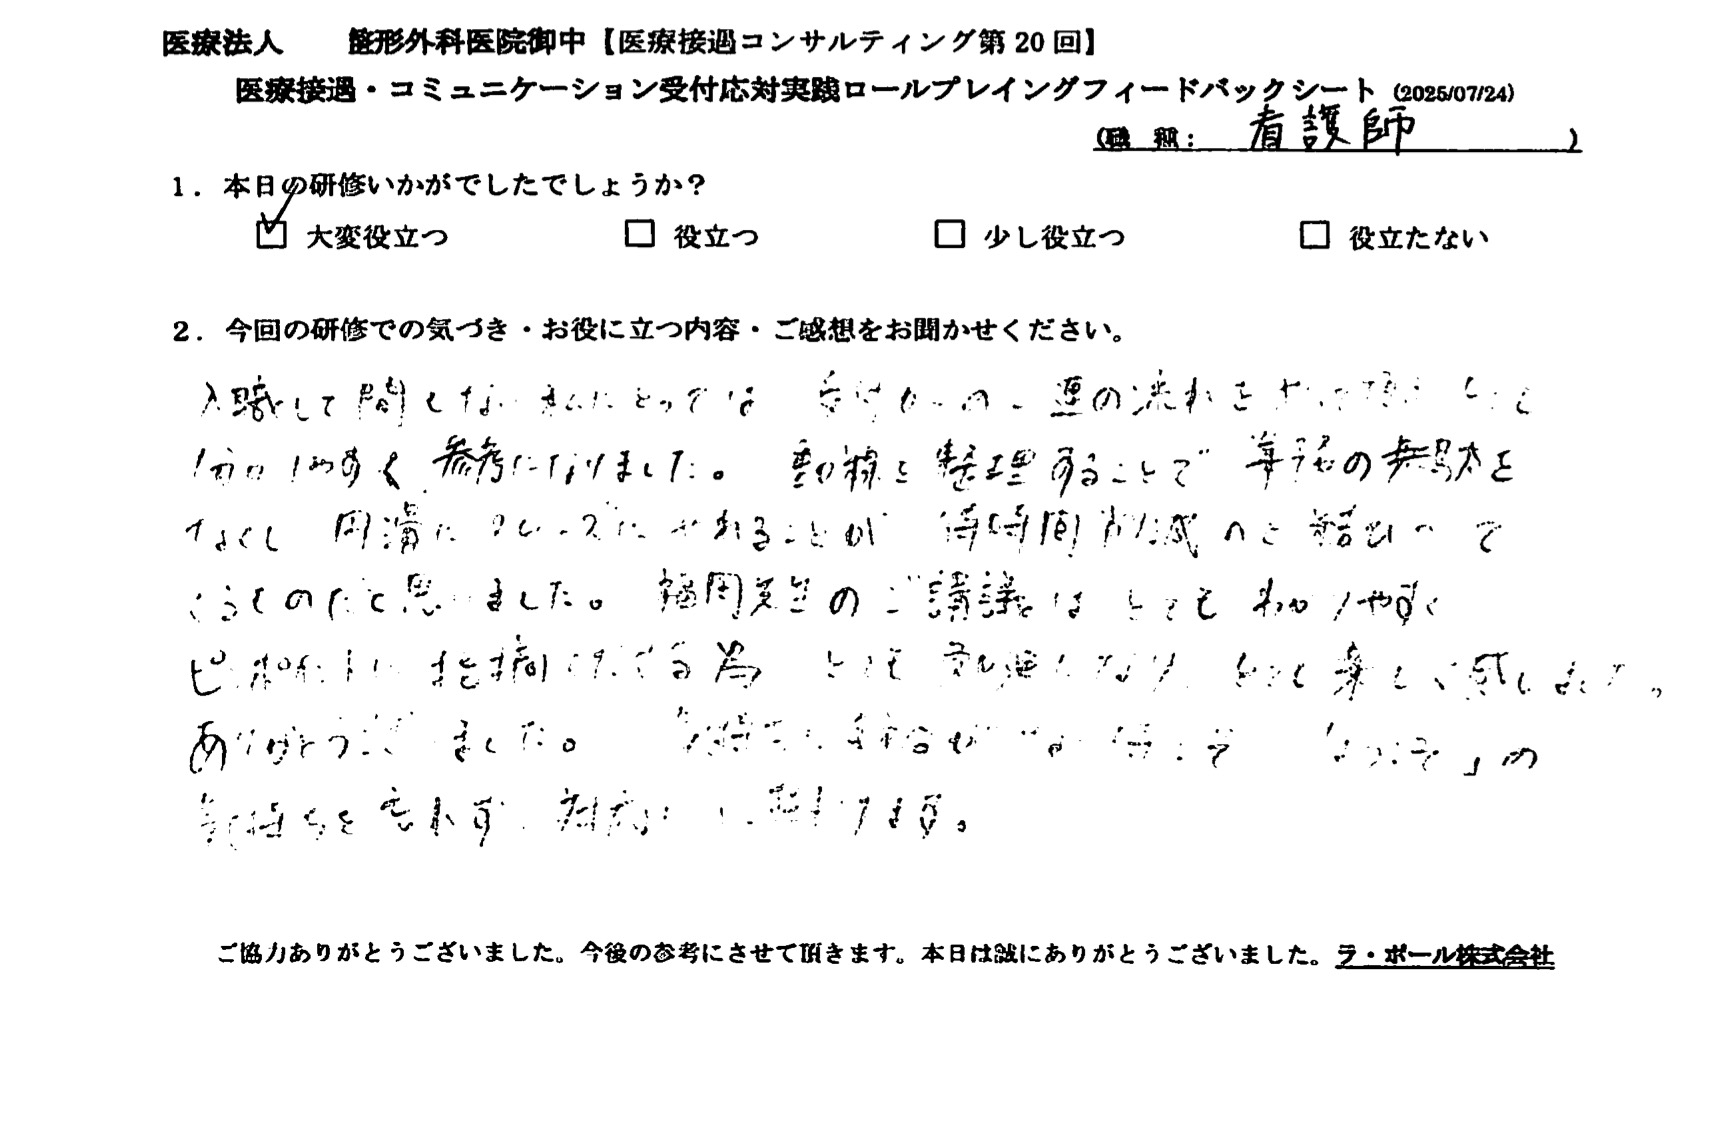 医療法人 整形外科医院御中【医療接遇コンサルティング第 20 回】
医療接遇・コミュニケーション受付応対実践ロールプレイングフィードバックシート (2025/07/24)
(職 種: 看護師 )
1. 本日の研修いかがでしたでしょうか?
☑ 大変役立つ □ 役立つ □ 少し役立つ □ 役立たない
2. 今回の研修での気づき・お役に立つ内容・ご感想をお聞かせください。
入職して間もない私にとっては 受付からの一連の流れを とても
分かりやすく 参考になりました。 動線を整理することで 準備の無駄を
なくし 円滑に スムーズに されることが 待時間削減へと結びついて
くるものだと思いました。 福岡先生のご講議は とても わかりやすく
ピンポイントに 指摘くださる為 とても 勉強になり とても楽しく感じました。
ありがとうございました。 ようこそ」の
気持ちを忘れず 対応 ます。
ご協力ありがとうございました。今後の参考にさせて頂きます。本日は誠にありがとうございました。ラ・ポール株式会社